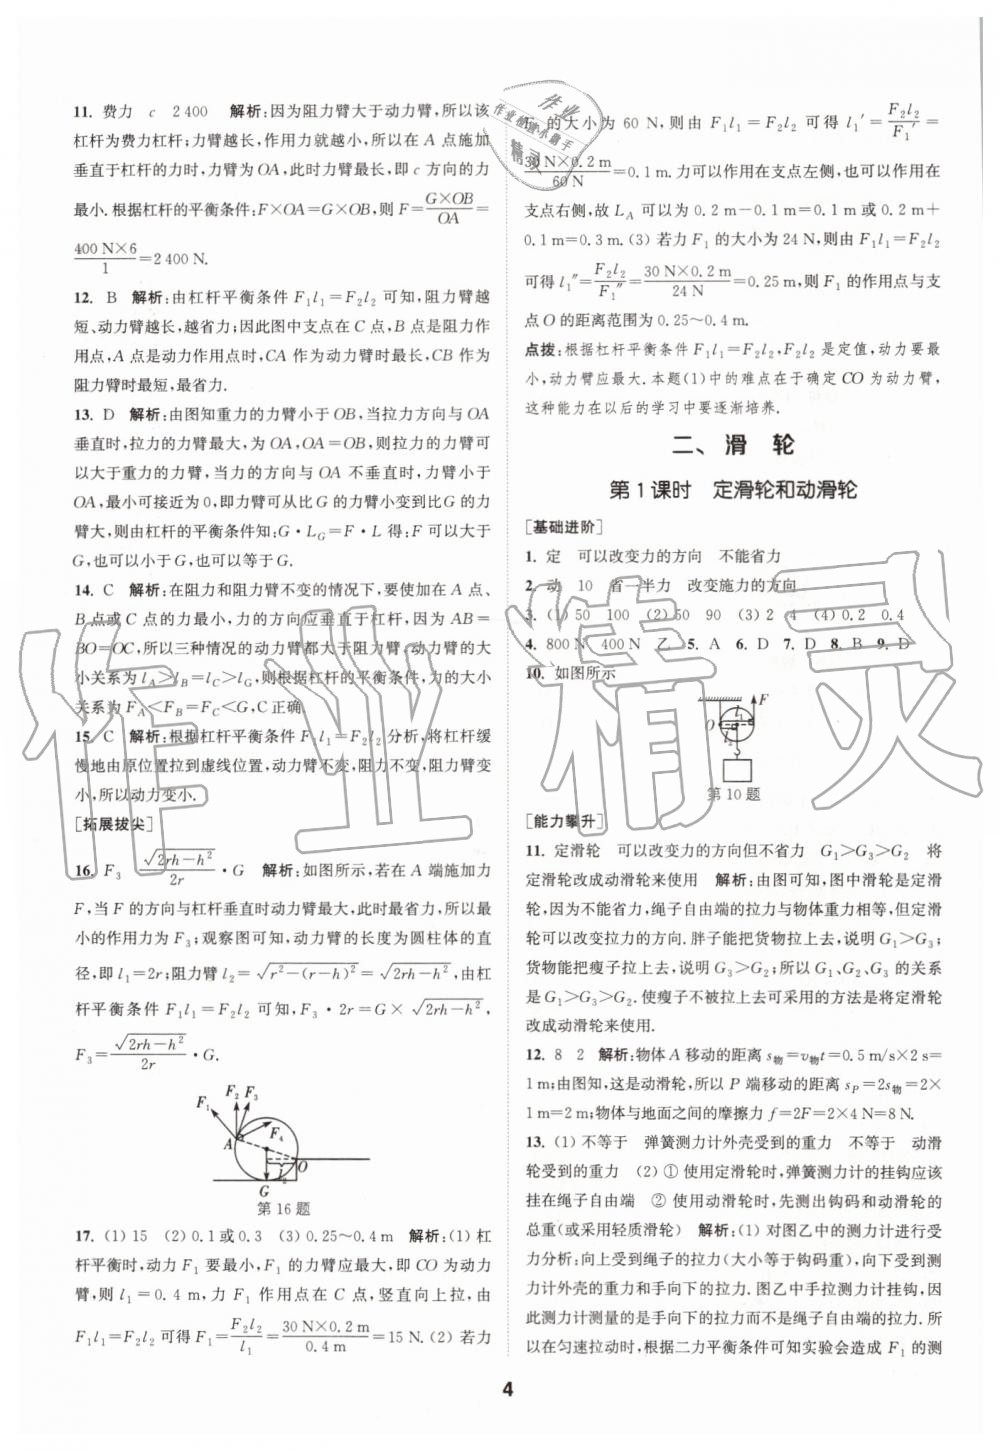 11. 费力 c 2 400 解析:因为阻力臂大于动力臂,所以该
杠杆为费力杠杆;力臂越长,作用力就越小,所以在 A 点施加
垂直杠杆的力时,力臂为 OA,此时力臂最长,即 c 方向的力
最小.根据杠杆的平衡条件:F×OA=G×OB,则 F=G×OB/OA=
400 N×6/1=2 400 N.
12. B 解析:由杠杆平衡条件 F₁l₁=F₂l₂ 可知,阻力臂越
短、动力臂越长,越省力;因此图中支点在 C 点,B 点是阻力作
用点,A 点是动力作用点时,CA 作为动力臂时最长,CB 作为
阻力臂时最短,最省力.
13. D 解析:由图知重力的力臂小于 OB,当拉力方向与 OA
垂直时,拉力的力臂最大,为 OA,OA=OB,则拉力的力臂可
以大于重力的力臂,当力的方向与 OA 不垂直时,力臂小于
OA,最小可接近为 0,即力臂可从比 G 的力臂小变到比 G 的力
臂大,则由杠杆的平衡条件知:G·L_G=F·L 得:F 可以大于
G,也可以小于 G,也可以等于 G.
14. C 解析:在阻力和阻力臂不变的情况下,要使加在 A 点、
B 点或 C 点的力最小,力的方向应垂直于杠杆,因为 AB=
BO=OC,所以三种情况的动力臂都大于阻力臂,动力臂的大
小关系为 l_A>l_B=l_C>l_G,则根据杠杆的平衡条件,力的大小
关系为 F_A<F_B=F_C<G,C 正确.
15. C 解析:根据杠杆平衡条件 F₁l₁=F₂l₂ 分析,将杠杆缓
慢地由原位置拉到虚线位置,动力臂不变,阻力不变,阻力臂变
小,所以动力变小.
[拓展拔尖]
16. F₃ √(2rh-h²)/2r·G 解析:如图所示,若在 A 端施加力
F,当 F 的方向与杠杆垂直时动力臂最大,此时最省力,所以最
小的作用力为 F₃;观察图可知,动力臂的长度为圆柱体的直
径,即 l₁=2r;阻力臂 l₂=√(r²-(r-h)²)=√(2rh-h²),由杠
杆平衡条件 F₁l₁=F₂l₂ 可知,F₃·2r=G×√(2rh-h²),
F₃=√(2rh-h²)/2r·G.
F₁ F₂ F₃
F₄
A
O
l₂
G
第 16 题
17. (1) 15 (2) 0.1 或 0.3 (3) 0.25~0.4 m 解析:(1) 杠
杆平衡时,动力 F₁ 要最小,F₁ 的力臂应最大,即 CO 为动力
臂,则 l₁=0.4 m,力 F₁ 作用点在 C 点,竖直向上拉,由
F₁l₁=F₂l₂ 可得 F₁=F₂l₂/l₁=30 N×0.2 m/0.4 m=15 N.(2) 若力
的大小为 60 N,则由 F₁l₁=F₂l₂ 可得 l₁′=F₂l₂/F₁′=
30 N×0.2 m/60 N=0.1 m.力可以作用在支点左侧,也可以作用在
支点右侧,故 L_A 可以为 0.2 m-0.1 m=0.1 m 或 0.2 m+
0.1 m=0.3 m.(3) 若力 F₁ 的大小为 24 N,则由 F₁l₁=F₂l₂
可得 l₁″=F₂l₂/F₁″=30 N×0.2 m/24 N=0.25 m,则 F₁ 的作用点与支
点 O 的距离范围为 0.25~0.4 m.
点拨:根据杠杆平衡条件 F₁l₁=F₂l₂,F₂l₂ 是定值,动力要最
小,动力臂应最大.本题(1)中的难点在于确定 CO 为动力臂,
这种能力在以后的学习中要逐渐培养.
二、滑 轮
第 1 课时 定滑轮和动滑轮
[基础进阶]
1. 定 可以改变力的方向 不能省力
2. 动 10 省一半力 改变施力的方向
3. (1) 50 100 (2) 50 90 (3) 2 4 (4) 0.2 0.4
4. 800 N 400 N 乙 5. A 6. D 7. D 8. B 9. D
10. 如图所示
F
O
l₁
l₂
第 10 题
[能力攀升]
11. 定滑轮 可以改变力的方向但不省力 G₁>G₃>G₂ 将
定滑轮改成动滑轮来使用 解析:由图可知,图中滑轮是定滑
轮,因为不能省力,绳子自由端的拉力与物体重力相等,但定滑
轮可以改变拉力的方向.胖子能把货物拉上去,说明 G₁>G₃;
货物能把瘦子拉上去,说明 G₃>G₂;所以 G₁、G₂、G₃ 的关系
是 G₁>G₃>G₂.使瘦子不被拉上去可采用的方法是将定滑轮
改成动滑轮来使用.
12. 8 2 解析:物体 A 移动的距离 s物=v物t=0.5 m/s×2 s=
1 m;由图知,这是动滑轮,所以 P 端移动的距离 s_P=2s物=2×
1 m=2 m;物体与地面之间的摩擦力 f=2F=2×4 N=8 N.
13. (1) 不等于 弹簧测力计外壳受到的重力 不等于 动滑
轮受到的重力 (2) ① 使用定滑轮时,弹簧测力计的挂钩应该
挂在绳子自由端 ② 使用动滑轮时,先测出钩码和动滑轮的
总重(或采用轻质滑轮) 解析:(1) 对图乙中的测力计进行受
力分析:向上受到绳子的拉力(大小等于钩码重),向下受到测
力计外壳的重力和手向下的拉力.图乙中手拉测力计挂钩,因
此测力计测量的是手向下的拉力而不是绳子向上的拉力.所
以在匀速拉动时,根据二力平衡条件可知实验会造成 F₁ 的测
4
作业
作业检查小帮手
精灵
作业精灵